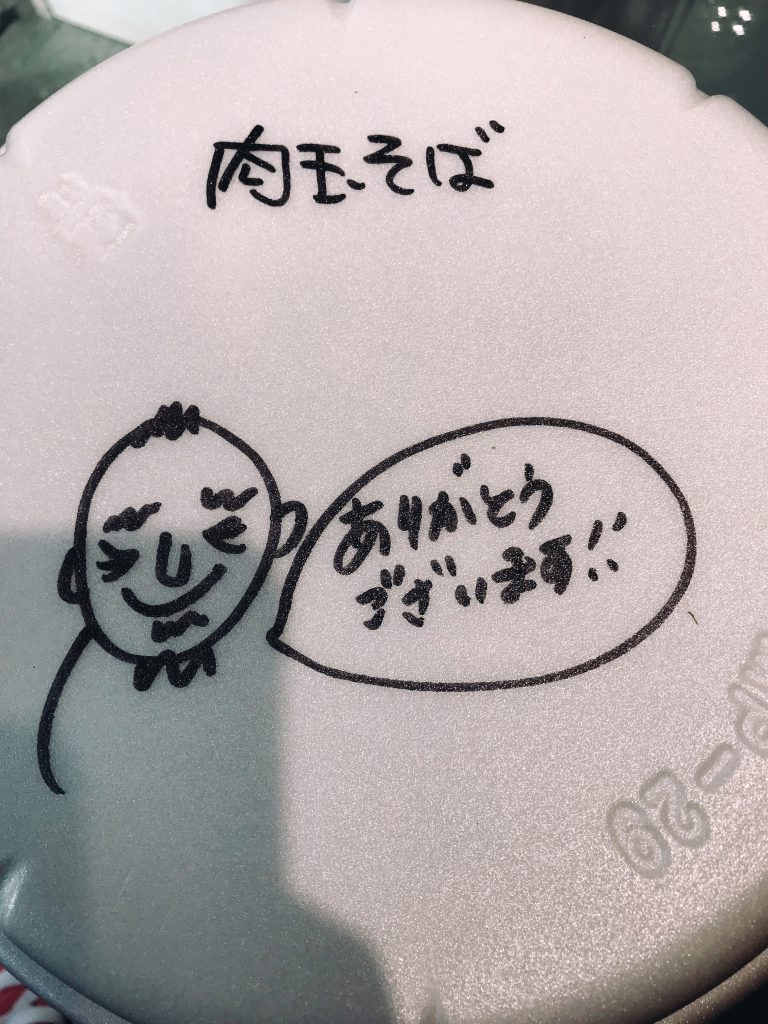 肉玉そば
ありがとう
ございます!!
P-29